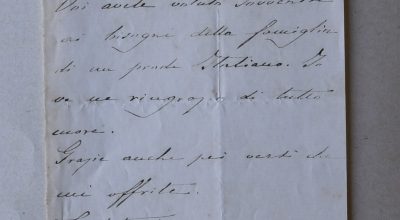 Voi avete voluto sovvenire
ai bisogni della famiglia
di un prode Italiano. Io
ve ne ringrazio di tutto
more.
Grazie anche pei versi che
mi offrite.